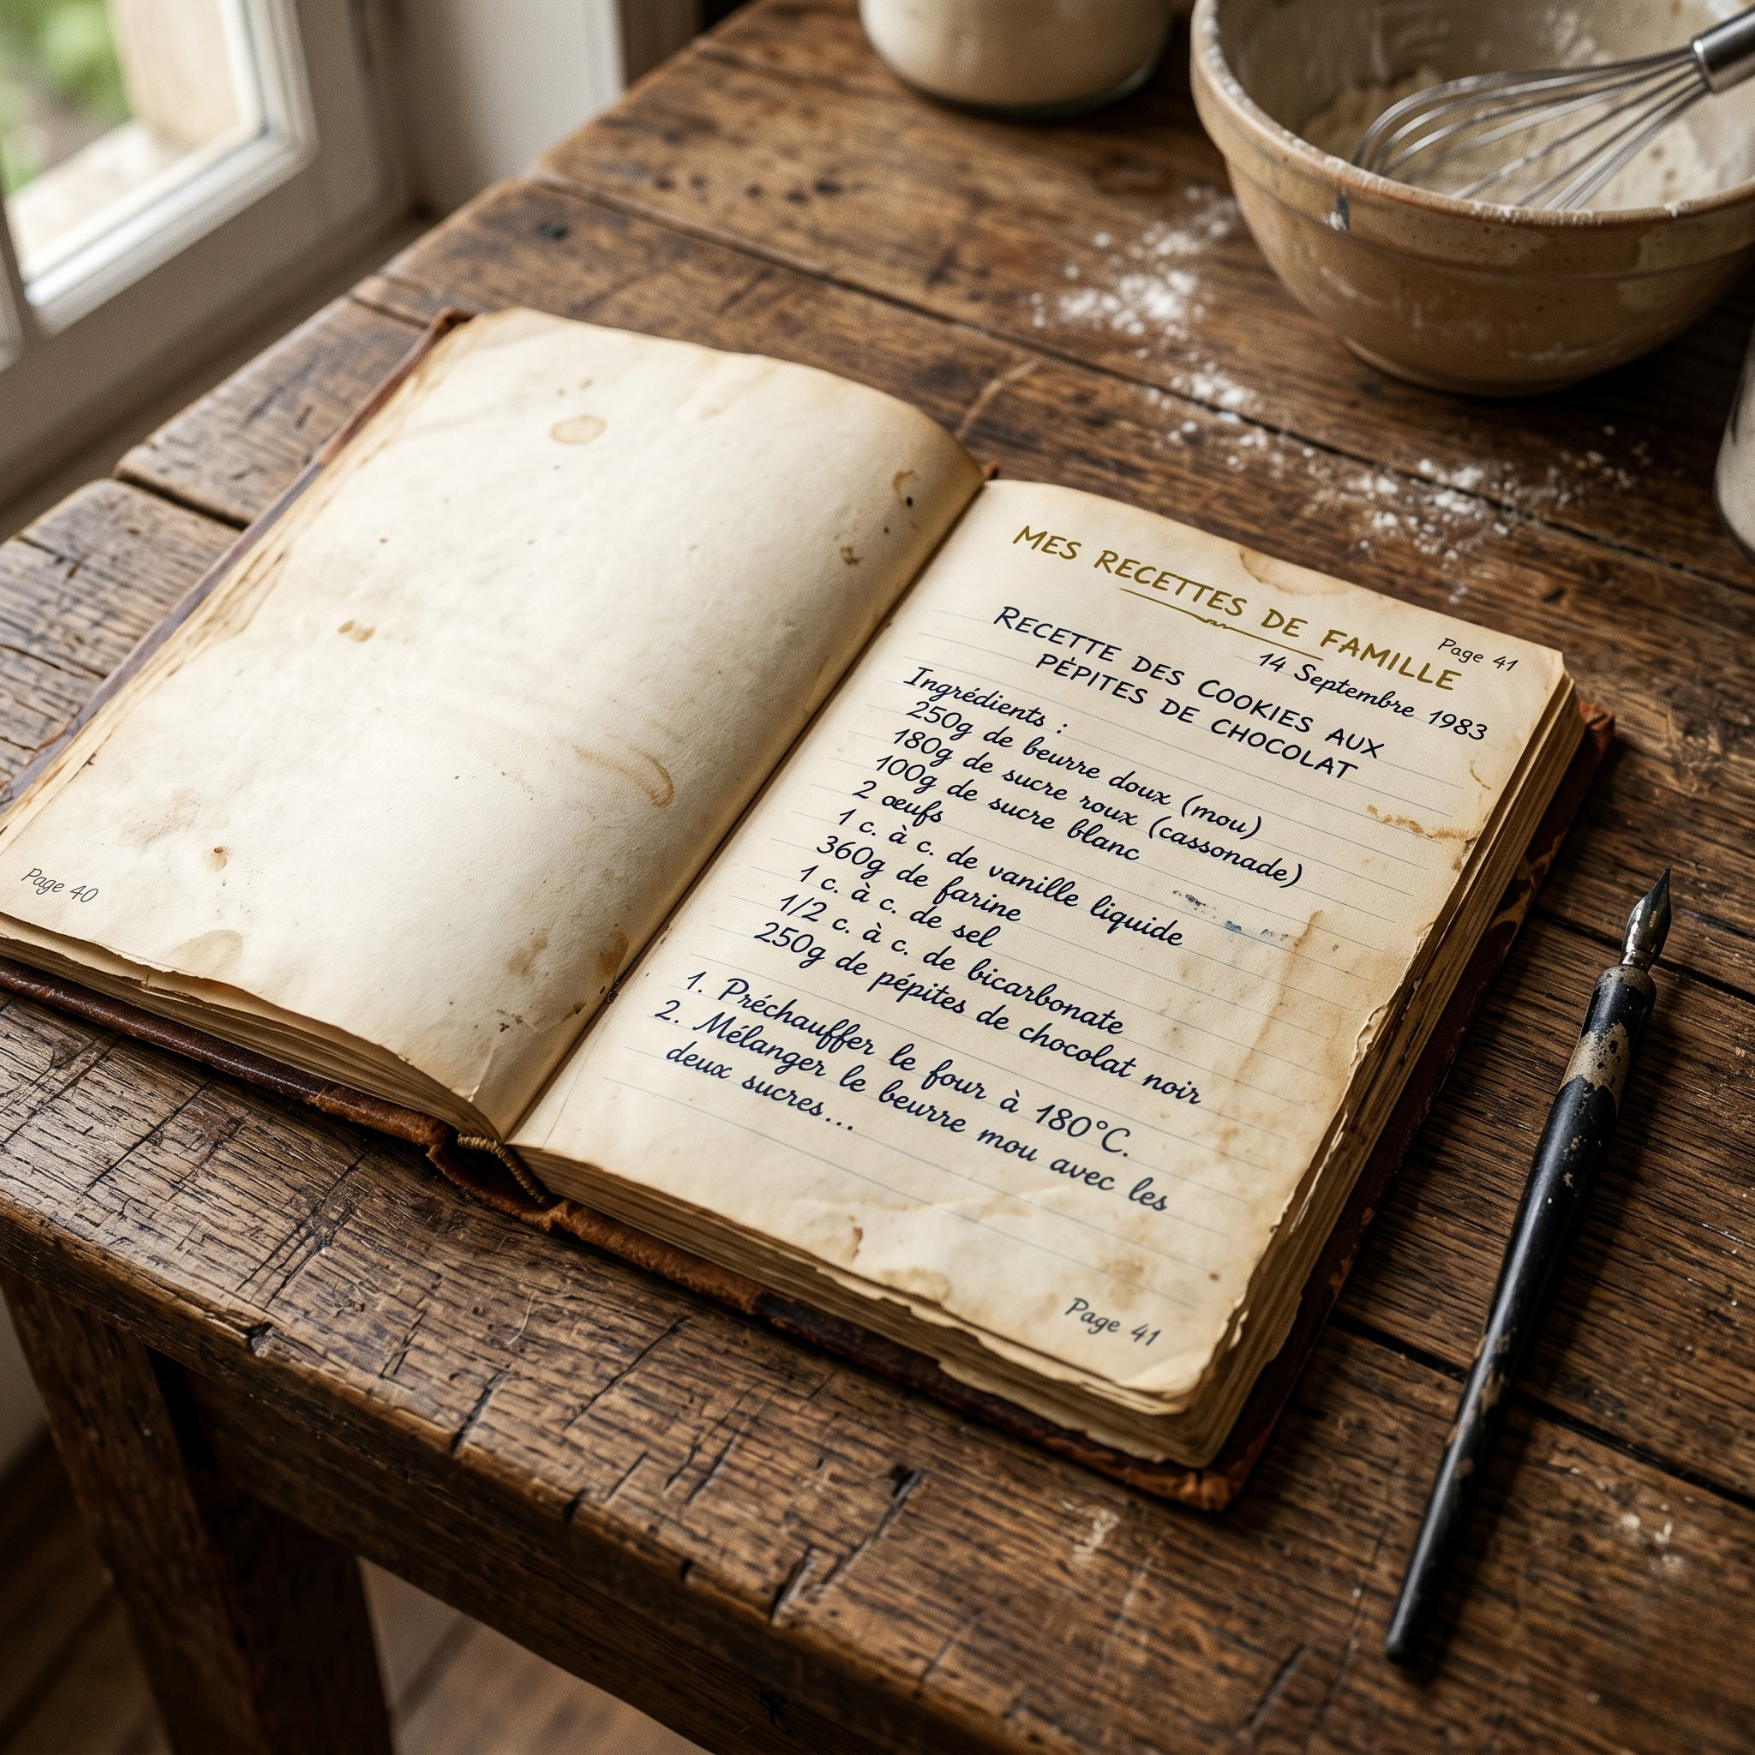 Page 40
MES RECETTES DE FAMILLE
Page 41
14 Septembre 1983
RECETTE DES COOKIES AUX
PÉPITES DE CHOCOLAT
Ingrédients :
250g de beurre doux (mou)
180g de sucre roux (cassonade)
100g de sucre blanc
2 œufs
1 c. à c. de vanille liquide
360g de farine
1 c. à c. de sel
1/2 c. à c. de bicarbonate
250g de pépites de chocolat noir
1. Préchauffer le four à 180°C.
2. Mélanger le beurre mou avec les
deux sucres...
Page 41